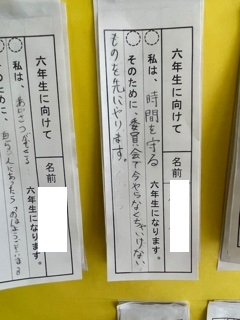 六年生に向けて 名前
私は、時間を守る 六年生になります。
そのために、委員会で今やらなくちゃいけない
ものを先にやります。
六年生に向けて 名前
私は、あいさつ 六年生になります。
のために、